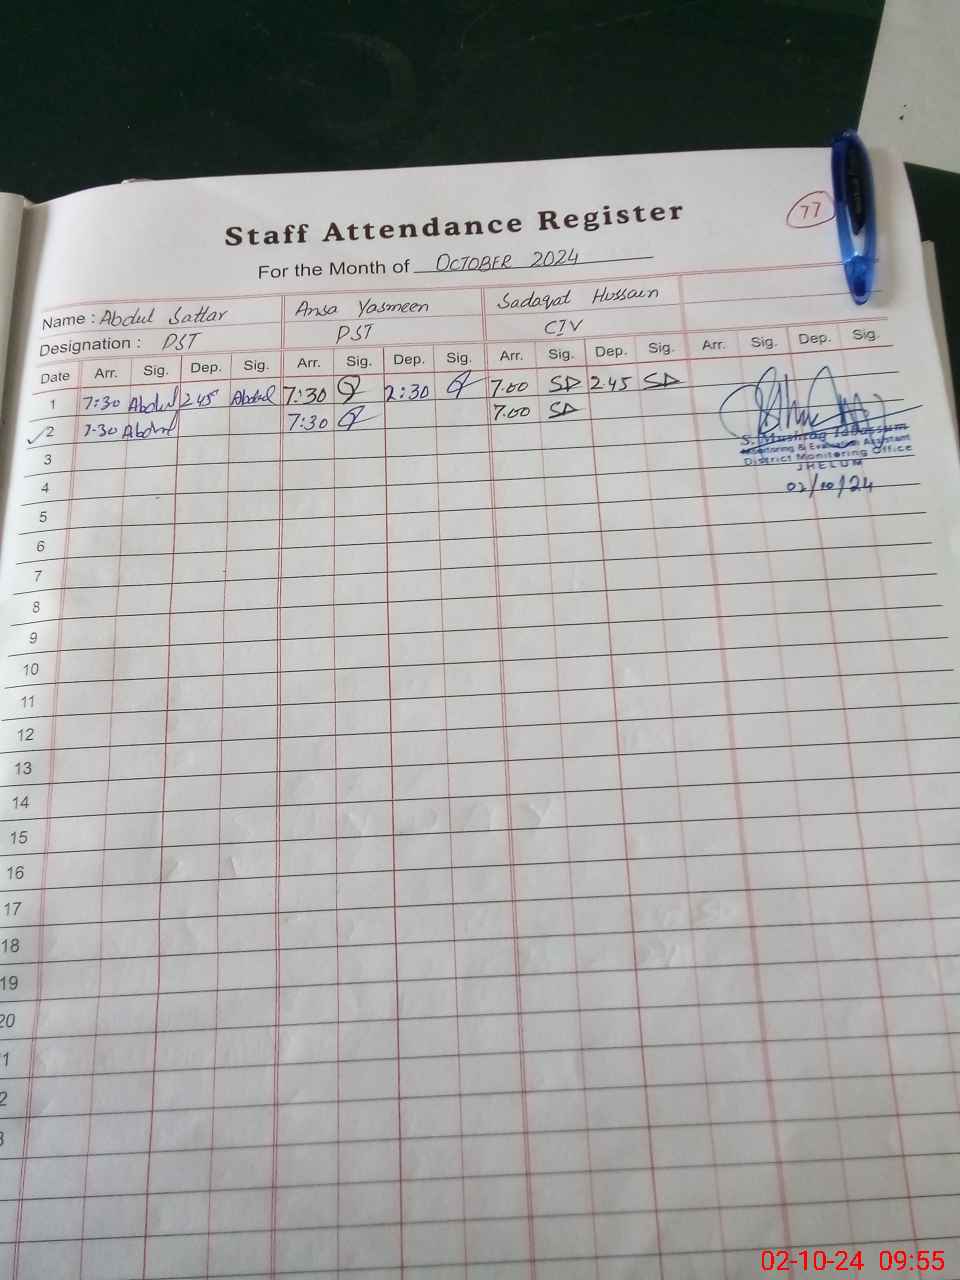 77
Staff Attendance Register
For the Month of OCTOBER 2024
Name : Abdul Sattar Ansa Yasmeen Sadaqat Hussain
Designation : PST PST CIV
Date Arr. Sig. Dep. Sig. Arr. Sig. Dep. Sig. Arr. Sig. Dep. Sig. Arr. Sig. Dep. Sig.
1 7:30 Abdul 2 45 Abdul 7:30 2:30 7.00 SD 2.45 SD
2 7.30 Abdul 7:30 7.00 SD
S. Mushtaq Tabassum
Monitoring & Evaluation Assistant
District Monitoring Office
JHELUM
02/10/24
3
4
5
6
7
8
9
10
11
12
13
14
15
16
17
18
19
20
1
2
3
02-10-24 09:55